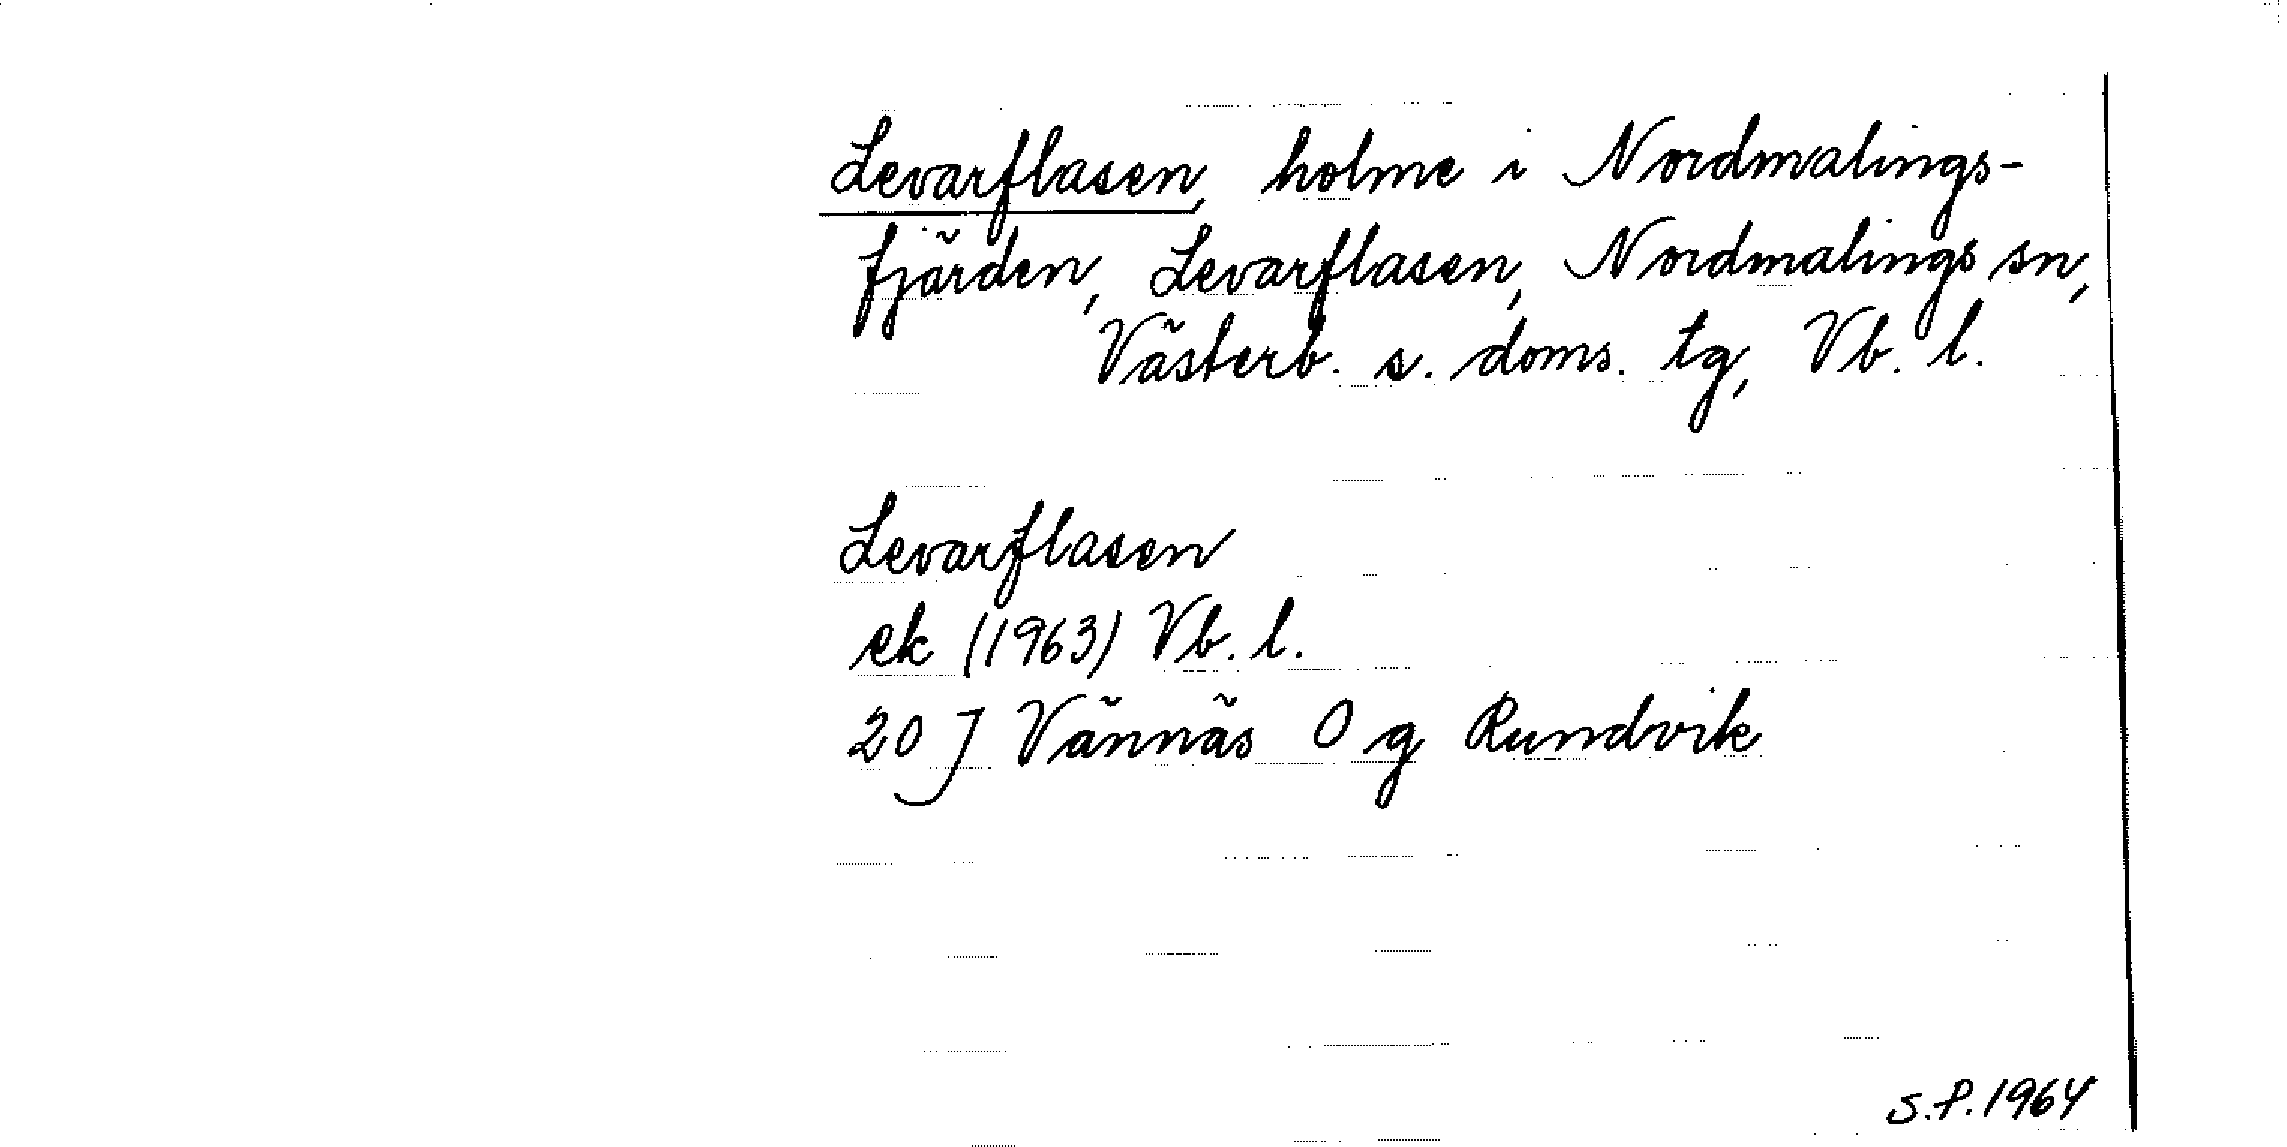 Levarflasen, holme i Nordmalings-
fjärden, Levarflasen, Nordmalings sn,
Västerb. s. doms. tg, Vb. l.
Levarflasen
ek (1963) Vb. l.
20 J Vännäs O g Rundvik
S.P. 1964